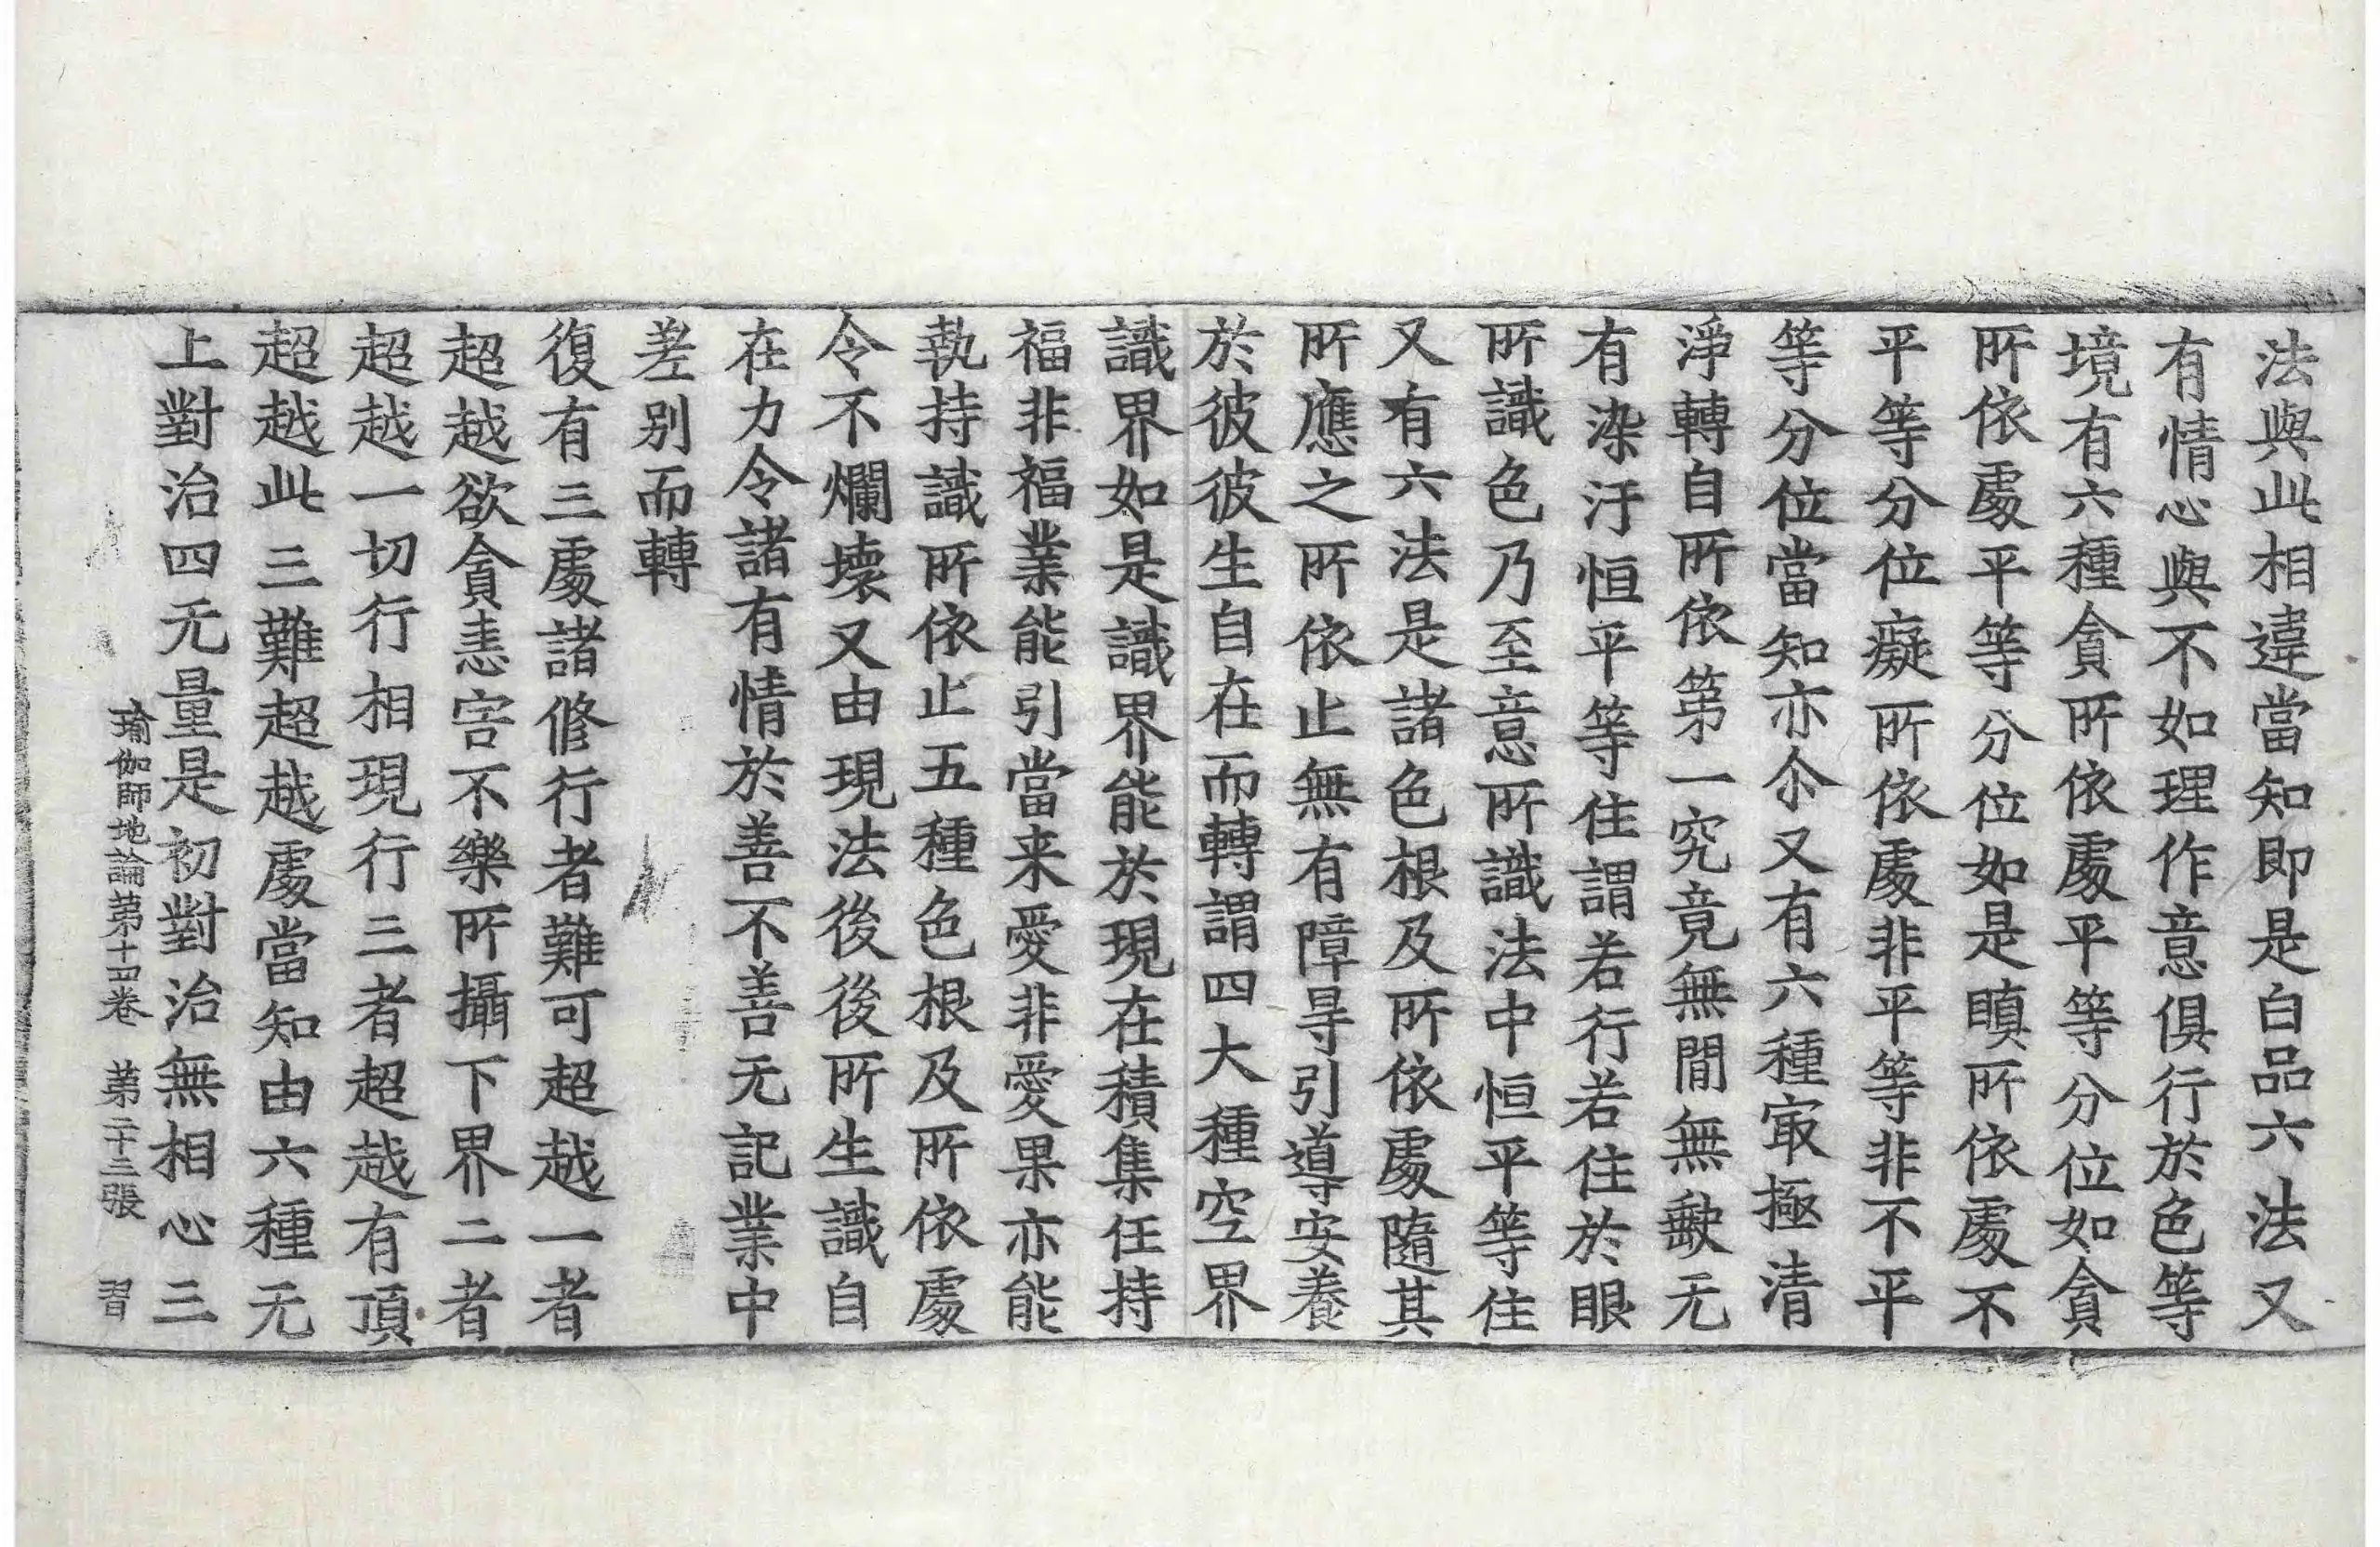 法與此相違當知即是白品六法又
有情心與不如理作意俱行於色等
境有六種貪所依處平等分位如貪
所依處平等分位如是瞋所依處不
平等分位癡所依處非平等非不平
等分位當知亦尒又有六種㝡極清
淨轉自所依第一究竟無間無㪍无
有染汙恒平等住謂若行若住於眼
所識色乃至意所識法中恒平等住
又有六法是諸色根及所依處隨其
所應之所依止無有障㝵引導安養
於彼彼生自在而轉謂四大種空界
識界如是識界能於現在積集任持
福非福業能引當来愛非愛果亦能
執持識所依止五種色根及所依處
令不爛壞又由現法後後所生識自
在力令諸有情於善不善无記業中
差别而轉
復有三處諸修行者難可超越一者
超越欲貪恚害不樂所攝下界二者
超越一切行相現行三者超越有頂
超越此三難超越處當知由六種无
上對治四无量是初對治無相心三
瑜伽師地論第十四卷 第二十三張 習